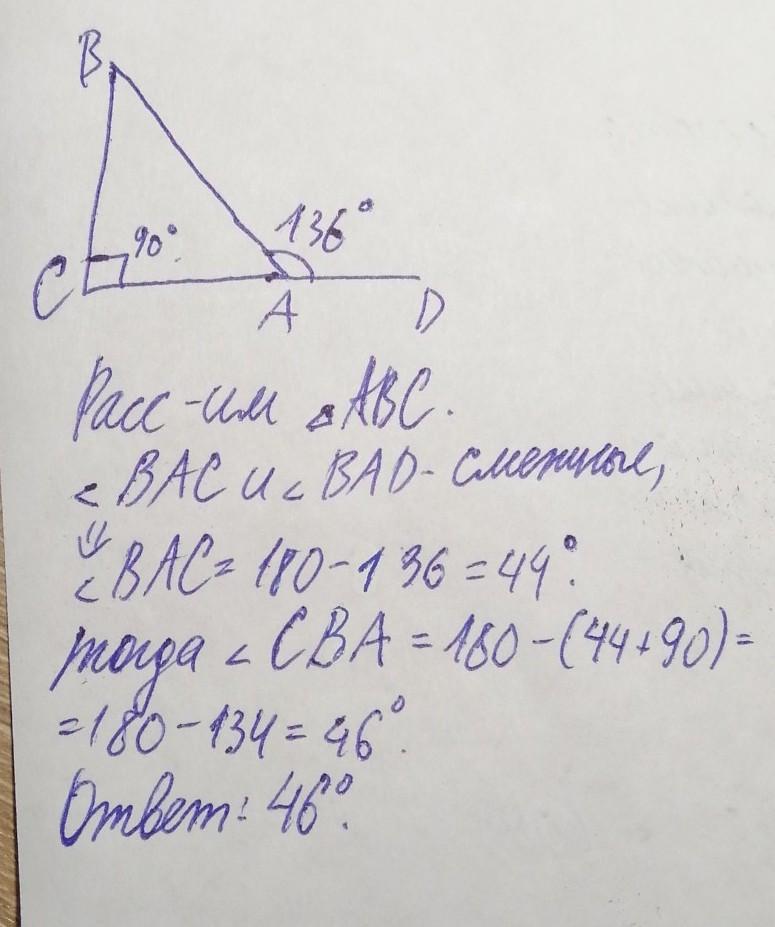 B
90°
136°
C
A
D
Расс-им △ABC.
∠BAC и ∠BAD - смежные,
⇓
∠BAC = 180 - 136 = 44°.
тогда ∠CBA = 180 - (44+90) =
= 180 - 134 = 46°.
Ответ: 46°.